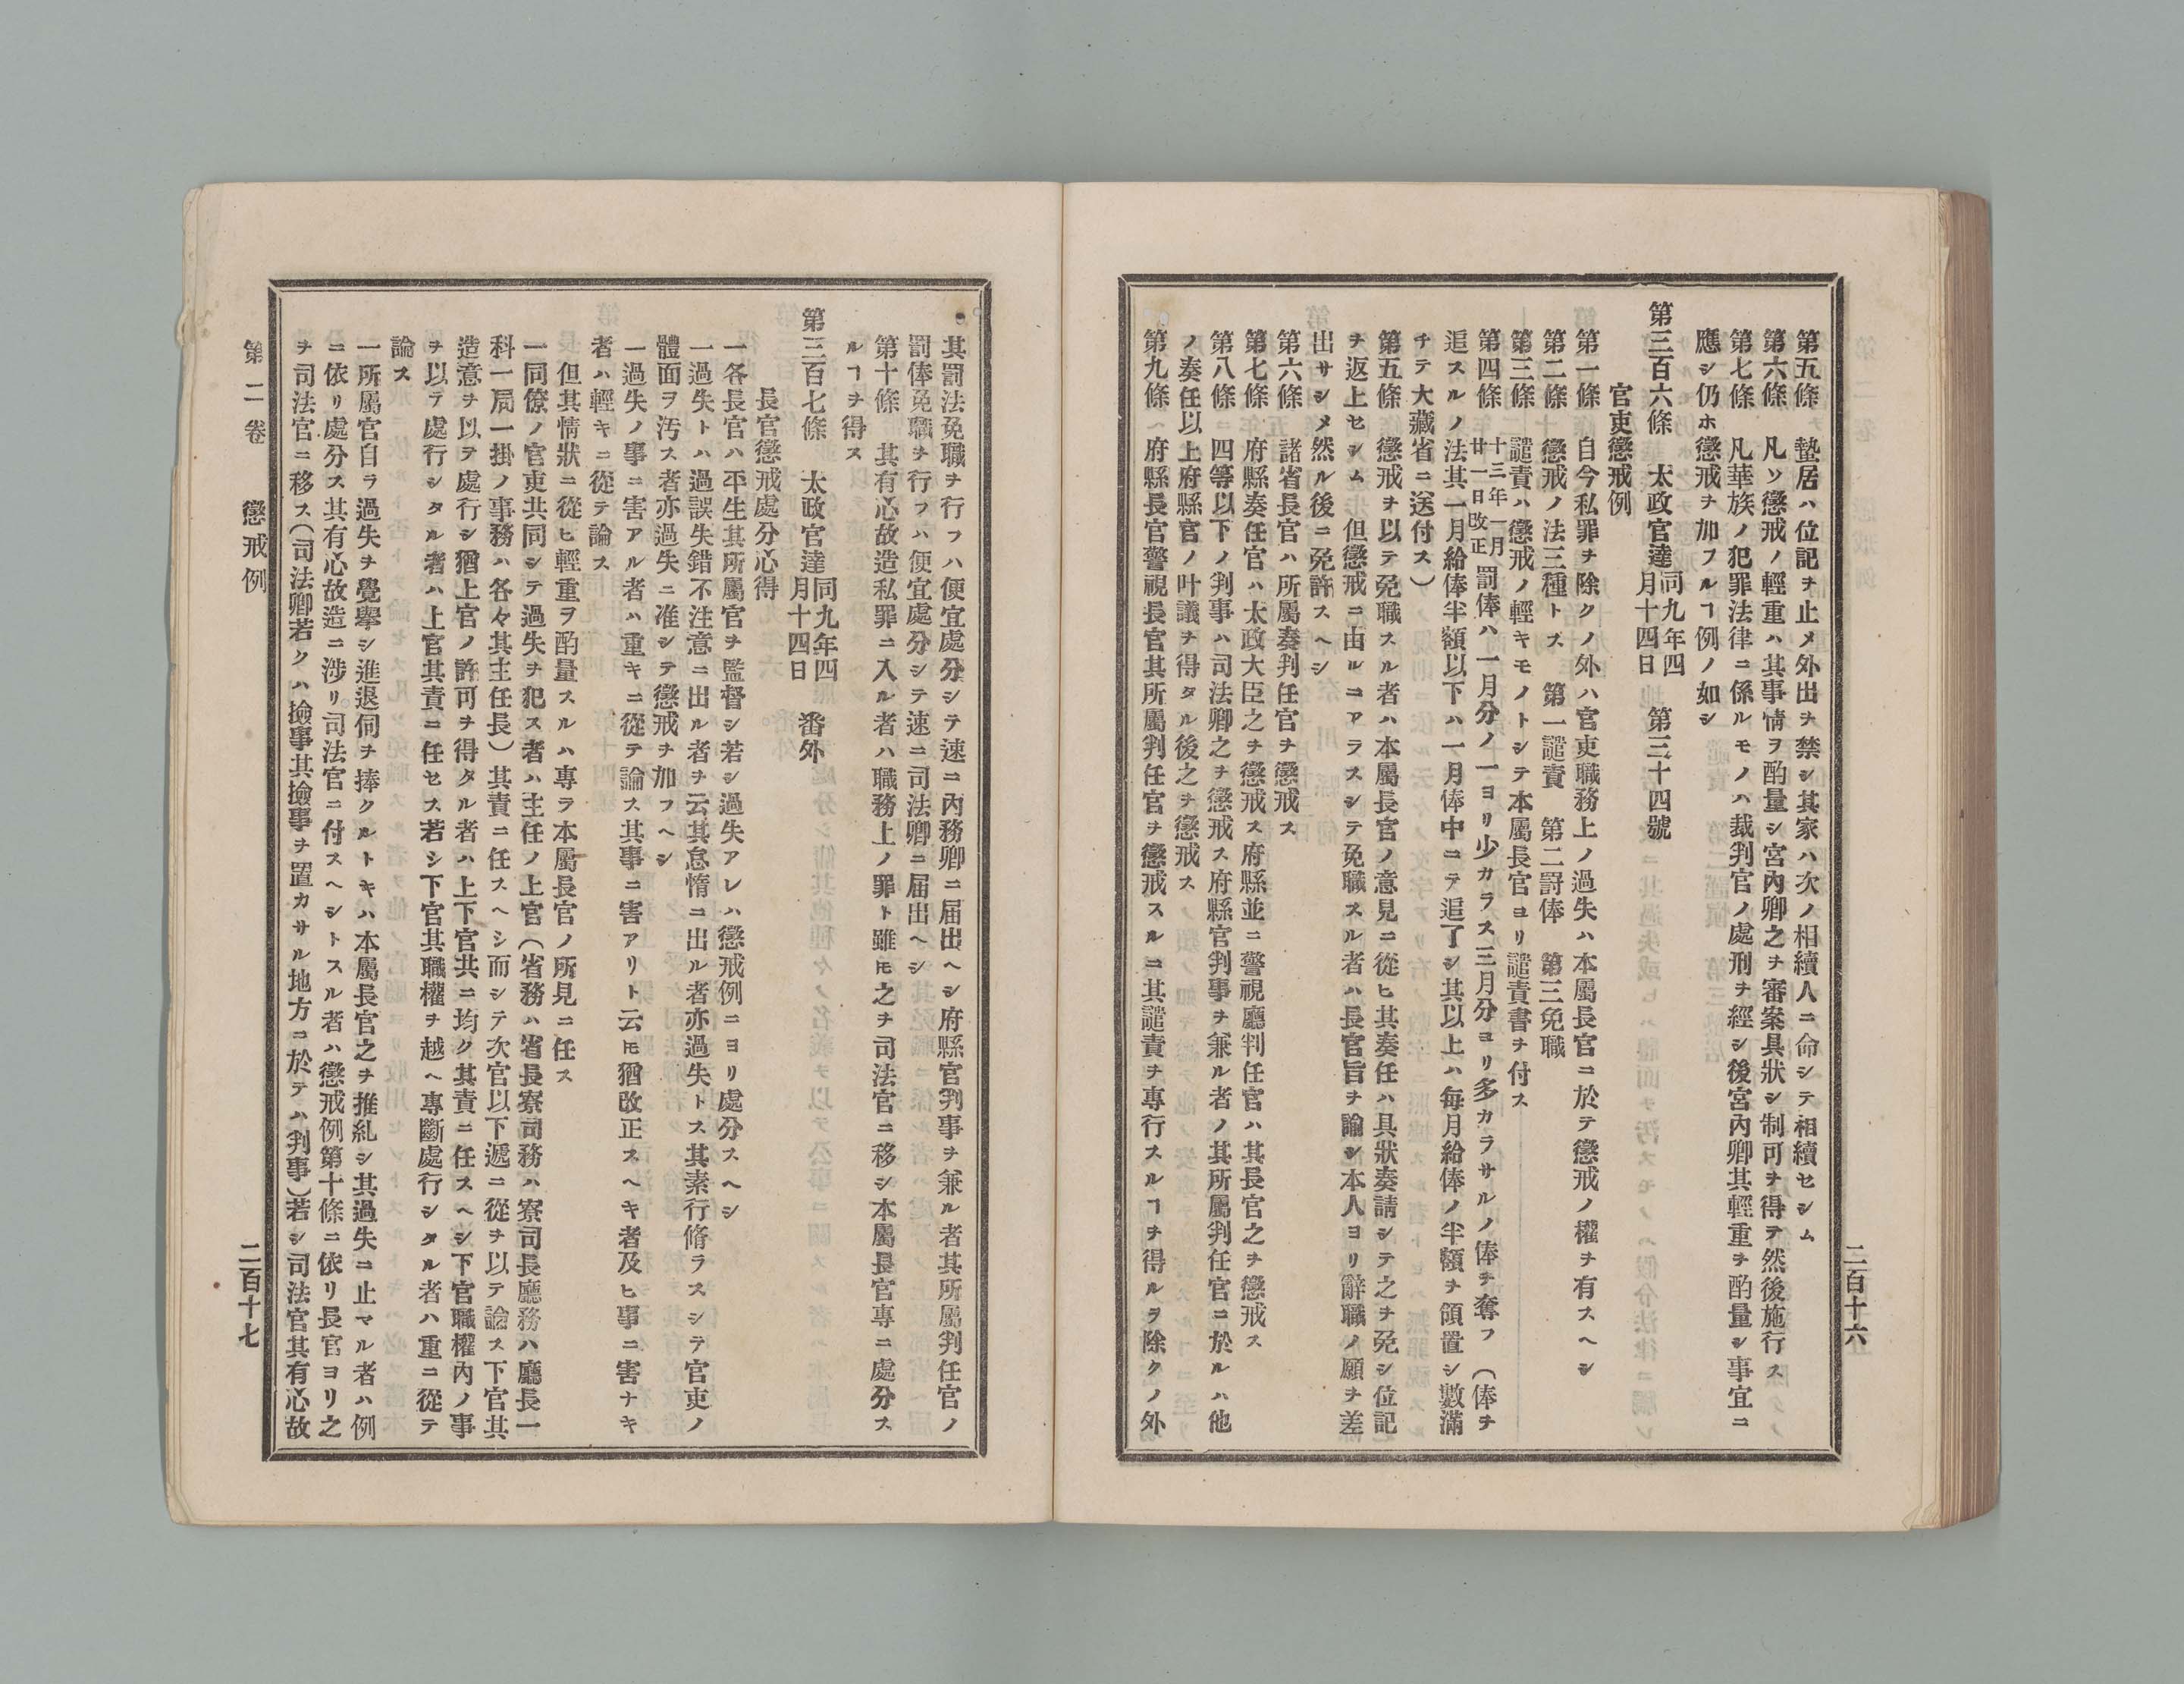 二百十六
第五條　蟄居ハ位記ヲ止メ外出ヲ禁シ其家ハ次ノ相續人ニ命シテ相續セシム
第六條　凡ソ懲戒ノ輕重ハ其事情ヲ酌量シ宮內卿之ヲ審案具狀シ制可ヲ得テ然後施行ス
第七條　凡華族ノ犯罪法律ニ係ルモノハ裁判官ノ處刑ヲ經シ後宮內卿其輕重ヲ酌量シ事宜ニ
應シ仍ホ懲戒ヲ加フルヿ例ノ如シ
第三百六條　太政官達同九年四月十四日　第三十四號
官吏懲戒例
第一條　自今私罪ヲ除クノ外ハ官吏職務上ノ過失ハ本屬長官ニ於テ懲戒ノ權ヲ有スヘシ
第二條　懲戒ノ法三種トス　第一譴責　第二罰俸　第三免職
第三條　譴責ハ懲戒ノ輕キモノトシテ本屬長官ヨリ譴責書ヲ付ス
第四條　十三年一月廿一日改正　罰俸ハ一月分ノ一ヨリ少カラス三月分ヨリ多カラサルノ俸ヲ奪フ（俸ヲ
追スルノ法其一月給俸半額以下ハ一月俸中ニテ追了シ其以上ハ每月給俸ノ半額ヲ領置シ數滿
チテ大藏省ニ送付ス）
第五條　懲戒ヲ以テ免職スル者ハ本屬長官ノ意見ニ從ヒ其奏任ハ具狀奏請シテ之ヲ免シ位記
ヲ返上セシム　但懲戒ニ由ルニアラスシテ免職スル者ハ長官旨ヲ諭シ本人ヨリ辭職ノ願ヲ差
出サシメ然ル後ニ免許スヘシ
第六條　諸省長官ハ所屬奏判任官ヲ懲戒ス
第七條　府縣奏任官ハ太政大臣之ヲ懲戒ス府縣並ニ警視廳判任官ハ其長官之ヲ懲戒ス
第八條　四等以下ノ判事ハ司法卿之ヲ懲戒ス府縣官判事ヲ兼ル者ノ其所屬判任官ニ於ルハ他
ノ奏任以上府縣官ノ叶議ヲ得タル後之ヲ懲戒ス
第九條　府縣長官警視長官其所屬判任官ヲ懲戒スルニ其譴責ヲ專行スルヿヲ得ルヲ除クノ外
其罰法免職ヲ行フハ便宜處分シテ速ニ內務卿ニ届出ヘシ府縣官判事ヲ兼ル者其所屬判任官ノ
罰俸免職ヲ行フハ便宜處分シテ速ニ司法卿ニ届出ヘシ
第十條　其有心故造私罪ニ入ル者ハ職務上ノ罪ト雖モ之ヲ司法官ニ移シ本屬長官專ニ處分ス
ルヿヲ得ス
第三百七條　太政官達同九年四月十四日　番外
長官懲戒處分心得
一各長官ハ平生其所屬官ヲ監督シ若シ過失アレハ懲戒例ニヨリ處分スヘシ
一過失トハ過誤失錯不注意ニ出ル者ヲ云其怠惰ニ出ル者亦過失トス其素行脩ラスシテ官吏ノ
體面ヲ汚ス者亦過失ニ准シテ懲戒ヲ加フヘシ
一過失ノ事ニ害アル者ハ重キニ從テ論ス其事ニ害アリト云モ猶改正スヘキ者及ヒ事ニ害ナキ
者ハ輕キニ從テ論ス
但其情狀ニ從ヒ輕重ヲ酌量スルハ專ラ本屬長官ノ所見ニ任ス
一同僚ノ官吏共同シテ過失ヲ犯ス者ハ主任ノ上官（省務ハ省長寮司務ハ寮司長廳務ハ廳長一
科一局一掛ノ事務ハ各々其主任長）其責ニ任スヘシ而シテ次官以下遞ニ從ヲ以テ論ス下官其
造意ヲ以ヲ處行シ猶上官ノ許可ヲ得タル者ハ上下官共ニ均ク其責ニ任スヘシ下官職權內ノ事
ヲ以テ處行シタル者ハ上官其責ニ任セス若シ下官其職權ヲ越ヘ專斷處行シタル者ハ重ニ從テ
論ス
一所屬官自ラ過失ヲ覺擧シ進退伺ヲ捧クルトキハ本屬長官之ヲ推糺シ其過失ニ止マル者ハ例
ニ依リ處分ス其有心故造ニ涉リ司法官ニ付スヘシトスル者ハ懲戒例第十條ニ依リ長官ヨリ之
ヲ司法官ニ移ス（司法卿若クハ撿事其撿事ヲ置カサル地方ニ於テハ判事）若シ司法官其有心故
第二卷　懲戒例
二百十七